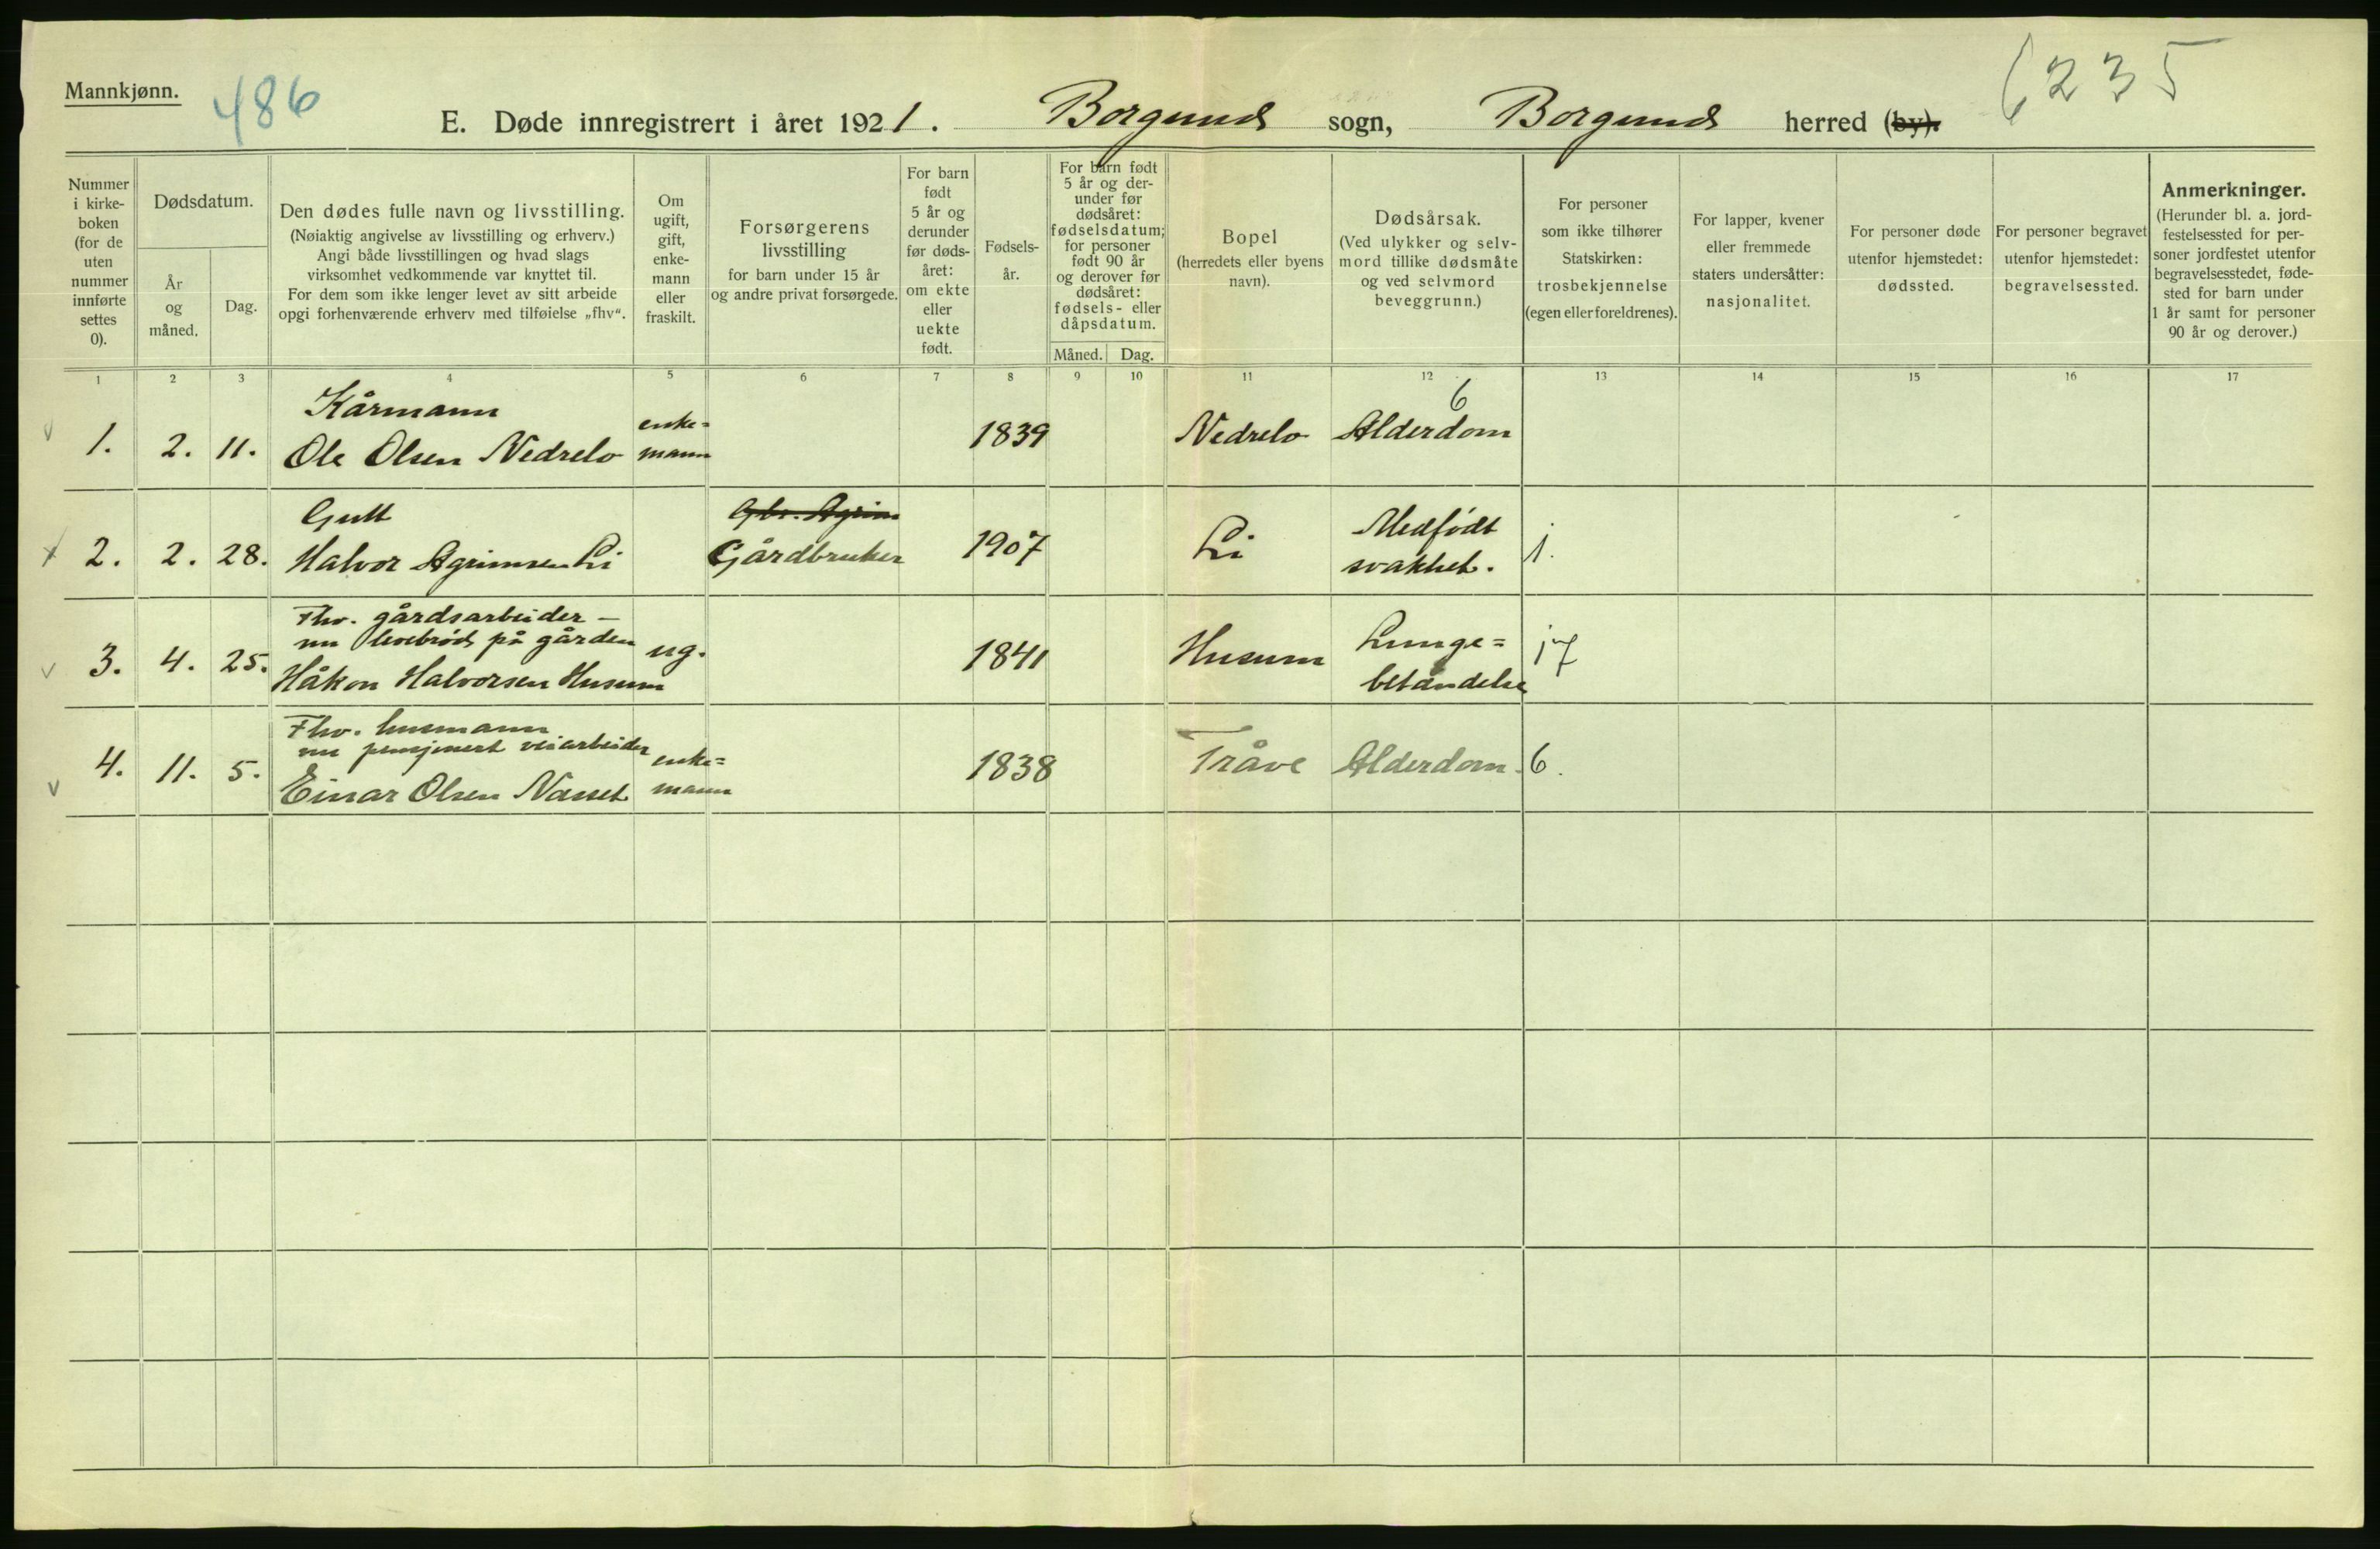 Mannkjønn.
486
6235
E. Døde innregistrert i året 1921. Borgund sogn, Borgund herred (by).
Nummer
i kirke-
boken
(for de
uten
nummer
innførte
settes
0).
Dødsdatum.
År
og
måned.
Dag.
Den dødes fulle navn og livsstilling.
(Nøiaktig angivelse av livsstilling og erhverv.)
Angi både livsstillingen og hvad slags
virksomhet vedkommende var knyttet til.
For dem som ikke lenger levet av sitt arbeide
opgi forhenværende erhverv med tilføielse „fhv“.
Om
ugift,
gift,
enke-
mann
eller
fraskilt.
Forsørgerens
livsstilling
for barn under 15 år
og andre privat forsørgede.
For barn
født
5 år og
derunder
før døds-
året:
om ekte
eller
uekte
født.
Fødsels-
år.
For barn født
5 år og der-
under før
dødsåret:
fødselsdatum;
for personer
født 90 år
og derover før
dødsåret:
fødsels- eller
dåpsdatum.
Måned. Dag.
Bopel
(herredets eller byens
navn).
Dødsårsak.
(Ved ulykker og selv-
mord tillike dødsmåte
og ved selvmord
beveggrunn.)
For personer
som ikke tilhører
Statskirken:
trosbekjennelse
(egen eller foreldrenes).
For lapper, kvener
eller fremmede
staters undersåtter:
nasjonalitet.
For personer døde
utenfor hjemstedet:
dødssted.
For personer begravet
utenfor hjemstedet:
begravelsessted.
Anmerkninger.
(Herunder bl. a. jord-
festelsessted for per-
soner jordfestet utenfor
begravelsesstedet, føde-
sted for barn under
1 år samt for personer
90 år og derover.)
1 2 3 4 5 6 7 8 9 10 11 12 13 14 15 16 17
Kårmann enke= 6
1. 2. 11. Ole Olsen Nedrelo mann 1839 Nedrelo Alderdom
Gutt Gbr. Agrim Medfødt
2. 2. 28. Halvor Agrimsen Li Gårdbruker 1907 Li svakhet. 1.
Fhv. gårdsarbeider –
nu levebrød på gården ug. Lunge= 17
3. 4. 25. Håkon Halvorsen Husum 1841 Husum betændelse
Fhv. husmann
nu pensjonert veiarbeider enke=
4. 11. 5. Einar Olsen Næsset mann 1838 Tråve Alderdom. 6.